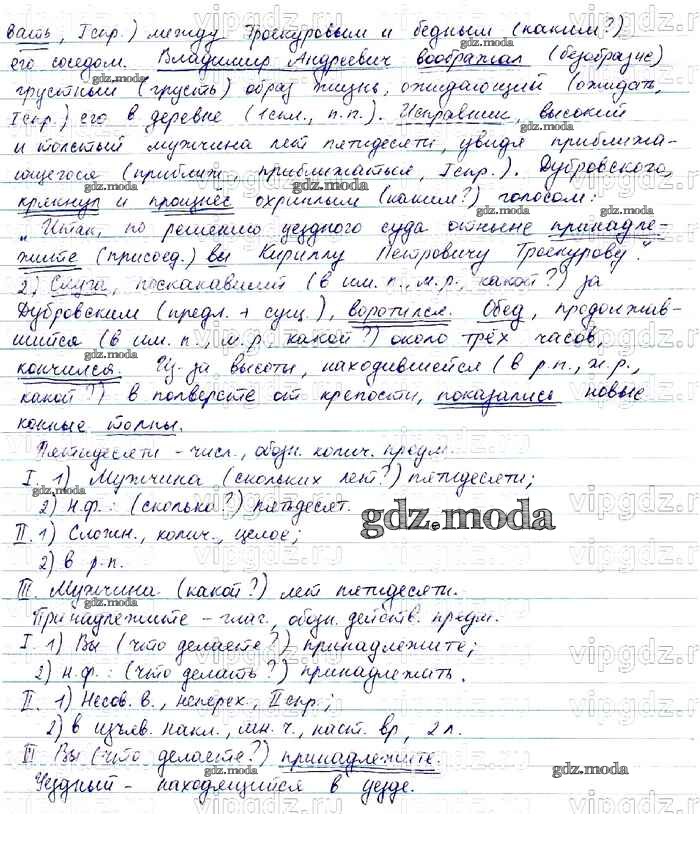 вать, I спр.) между Троекуровым и бедным (каким?)
его соседом. Владимир Андреевич воображал (безобразие)
грустный (грусть) образ жизни, ожидающий (ожидать,
I спр.) его в деревне (1 скл., п.п.). Исправник, высокий
и толстый мужчина лет пятидесяти, увидя приближа-
ющегося (приближ, приближаться, I спр.). Дубровского,
крякнул и произнёс охриплым (каким?) голосом:
„Итак, по решению уездного суда отныне принадле-
жите (присоед.) вы Кириллу Петровичу Троекурову".
2) Слуга, поскакавший (в им. п., м.р., какой?) за
Дубровским (предл. + сущ.), воротился. Обед, продолжив-
шийся (в им. п., м.р. какой?) около трёх часов,
кончился. Из-за высоты, находившейся (в р.п., ж.р.,
какой?) в полверсте от крепости, показались новые
конные толпы.
Пятидесяти - числ., обозн. колич. предм.
I. 1) Мужчина (скольких лет?) пятидесяти;
2) н.ф.: (сколько?) пятьдесят.
II. 1) Сложн., колич., целое;
2) в р.п.
III. Мужчина (какой?) лет пятидесяти.
Принадлежите - глаг., обозн. действ. предм.
I. 1) Вы (что делаете?) принадлежите;
2) н.ф.: (что делать?) принадлежать.
II. 1) Несов. в., неперех., II спр.;
2) в изъяв. накл., мн. ч., наст. вр, 2 л.
III Вы (что делаете?) принадлежите.
Уездный - находящийся в уезде.
gdz.moda
vipgdz.ru